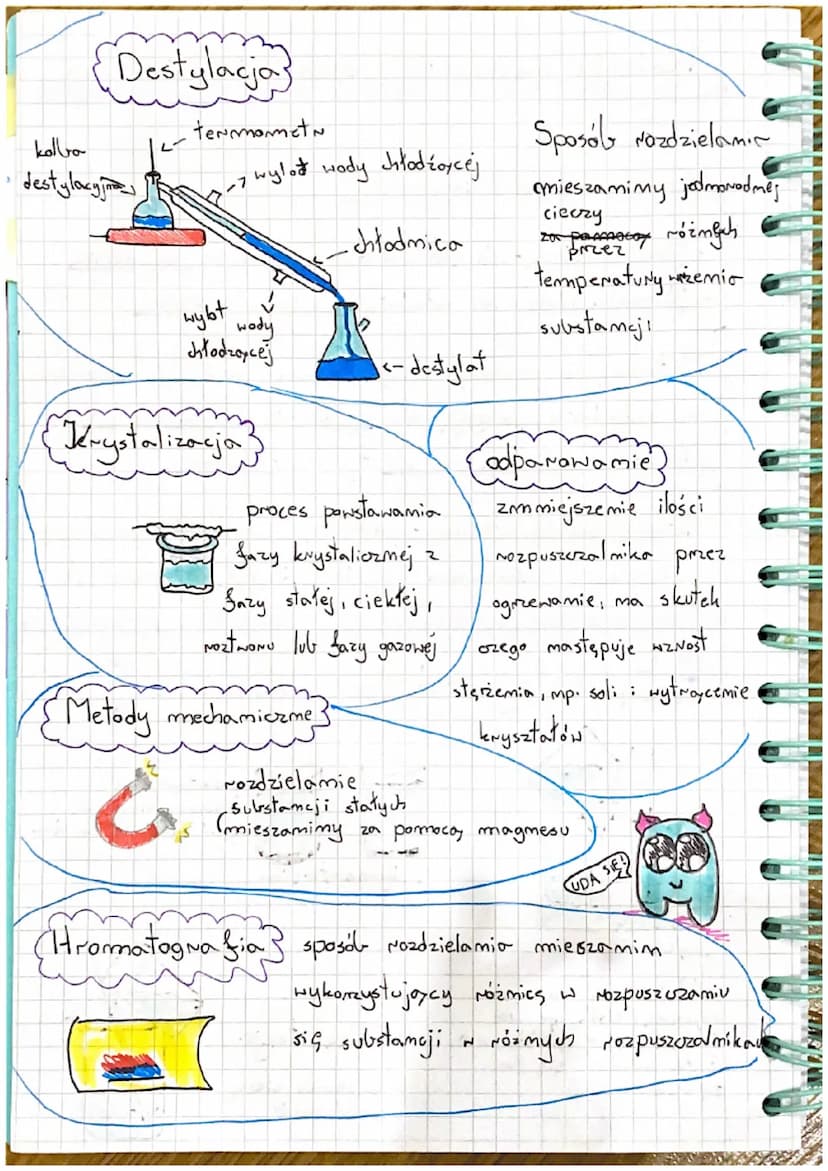 Destylacja
termometr
kolba
destylacyjna
wylot wody chłodzącej
chłodnica
wylot
wody
chłodzącej
destylat
Sposób rozdzielania
mieszaniny jednorodnej
cieczy
za pomocą różnych
przez
temperatury wrzenia
substancji
Krystalizacja
proces powstawania
fazy krystalicznej z
fazy stałej, ciekłej,
roztworu lub fazy gazowej
odparowanie
zmniejszenie ilości
rozpuszczalnika przez
ogrzewanie, na skutek
czego następuje wzrost
stężenia, np. soli i wytrącenie
kryształów
Metody mechaniczne
rozdzielanie
substancji stałych
(mieszaniny za pomocą magnesu
UDA SIĘ!
Hromatografia
sposób rozdzielania mieszanin
wykorzystujący różnicę w rozpuszczaniu
się substancji w różnych rozpuszczalnikach